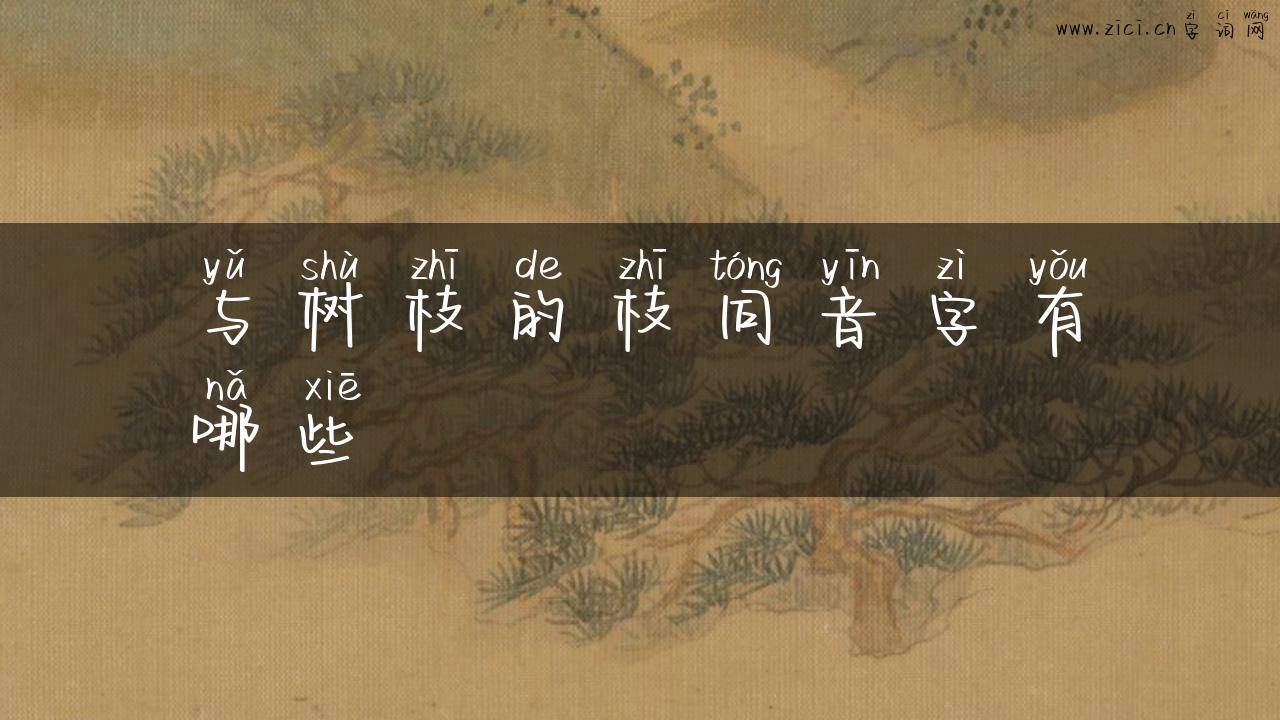 zì cí wǎng
www.zici.cn 字词网
yǔ shù zhī de zhī tóng yīn zì yǒu
与树枝的枝同音字有
nǎ xiē
哪些